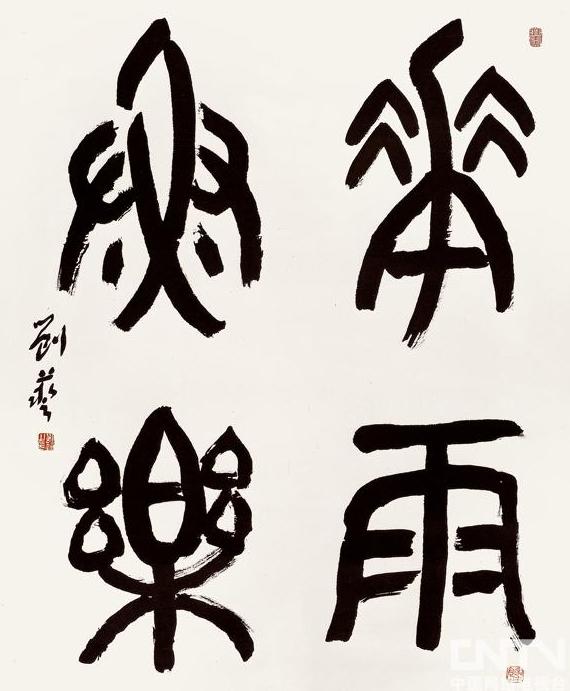 華雨
樂
劉藝
CNTV
中国网络电视台